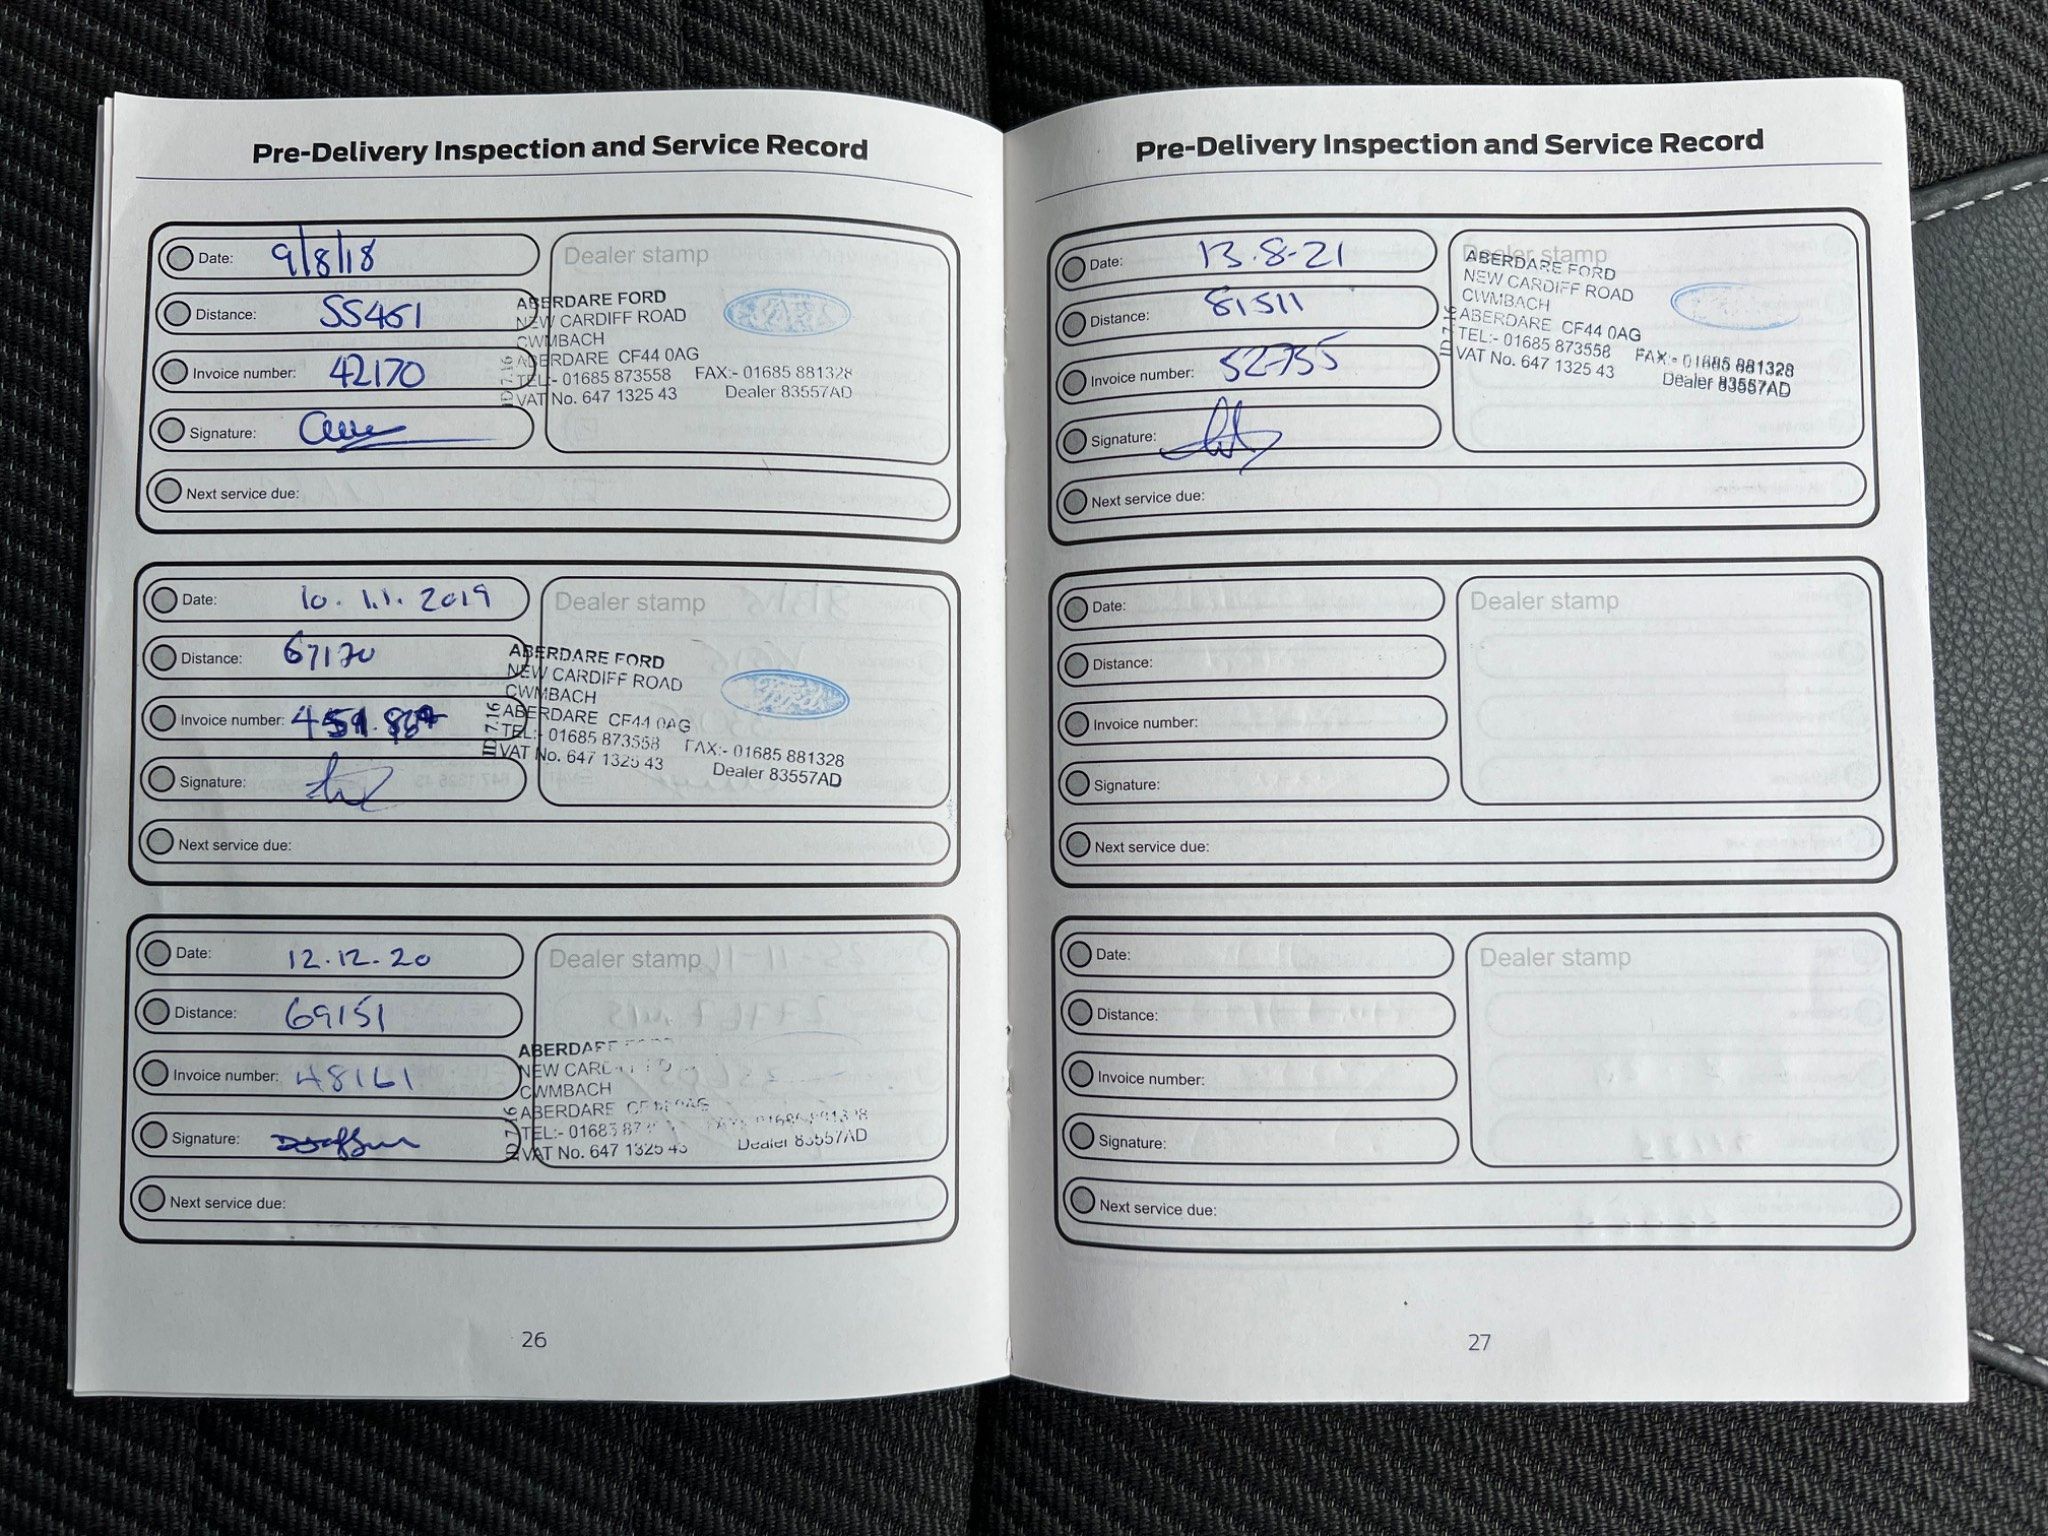 Pre-Delivery Inspection and Service Record
Date: 9/8/18
Distance: 55461
Invoice number: 42170
Signature:
Next service due:
Dealer stamp
ABERDARE FORD
NEW CARDIFF ROAD
CWMBACH
ABERDARE CF44 0AG
TEL:- 01685 873558 FAX:- 01685 881328
VAT No. 647 1325 43 Dealer 83557AD
ID 7.16
Date: 10.11.2019
Distance: 67170
Invoice number:
Signature:
Next service due:
Dealer stamp
ABERDARE FORD
NEW CARDIFF ROAD
CWMBACH
ABERDARE CF44 0AG
TEL:- 01685 873558 FAX:- 01685 881328
VAT No. 647 1325 43 Dealer 83557AD
ID 7.16
Ford
Date: 12.12.20
Distance: 69151
Invoice number: 48161
Signature:
Next service due:
Dealer stamp
NEW
CWMBACH
ABERDARE
TEL:-
VAT No. 647 1325 43 Dealer 83557AD
26
Pre-Delivery Inspection and Service Record
Date: 13.8.21
Distance: 81511
Invoice number: 52755
Signature:
Next service due:
Dealer stamp
ABERDARE FORD
NEW CARDIFF ROAD
CWMBACH
ABERDARE CF44 0AG
TEL:- 01685 873558 FAX:- 01685 881328
VAT No. 647 1325 43 Dealer 83557AD
ID 7.16
Date:
Distance:
Invoice number:
Signature:
Next service due:
Dealer stamp
Date:
Distance:
Invoice number:
Signature:
Next service due:
Dealer stamp
27